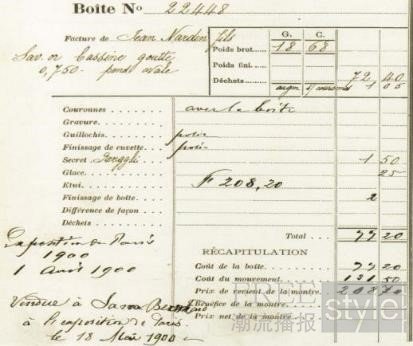 Boîte No 22448
Facture de Jean Nardin fils
G. C.
Poids brut 18 68
Sav. or Cassine goutte,
0,750 pend ovale
Poids fini
Déchets 72 40
argen 1 05
Couronnes avec la boîte
Gravure
Guillochis polie
Finissage de cuvette polie
Secret 1 50
Glace 25
Etui F 208,20
Finissage de boîte 2
Différence de façon
Déchets
Total 77 20
Exposition de Paris
1900
1 Avril 1900
RÉCAPITULATION
Coût de la boîte 77 20
Coût du mouvement 131 50
Prix de revient de la montre 208 70
Bénéfice de la montre
Prix net de la montre
Vendue à Sara Bernard
à l'exposition de Paris
le 18 Mai 1900
FREE style
潮流播报